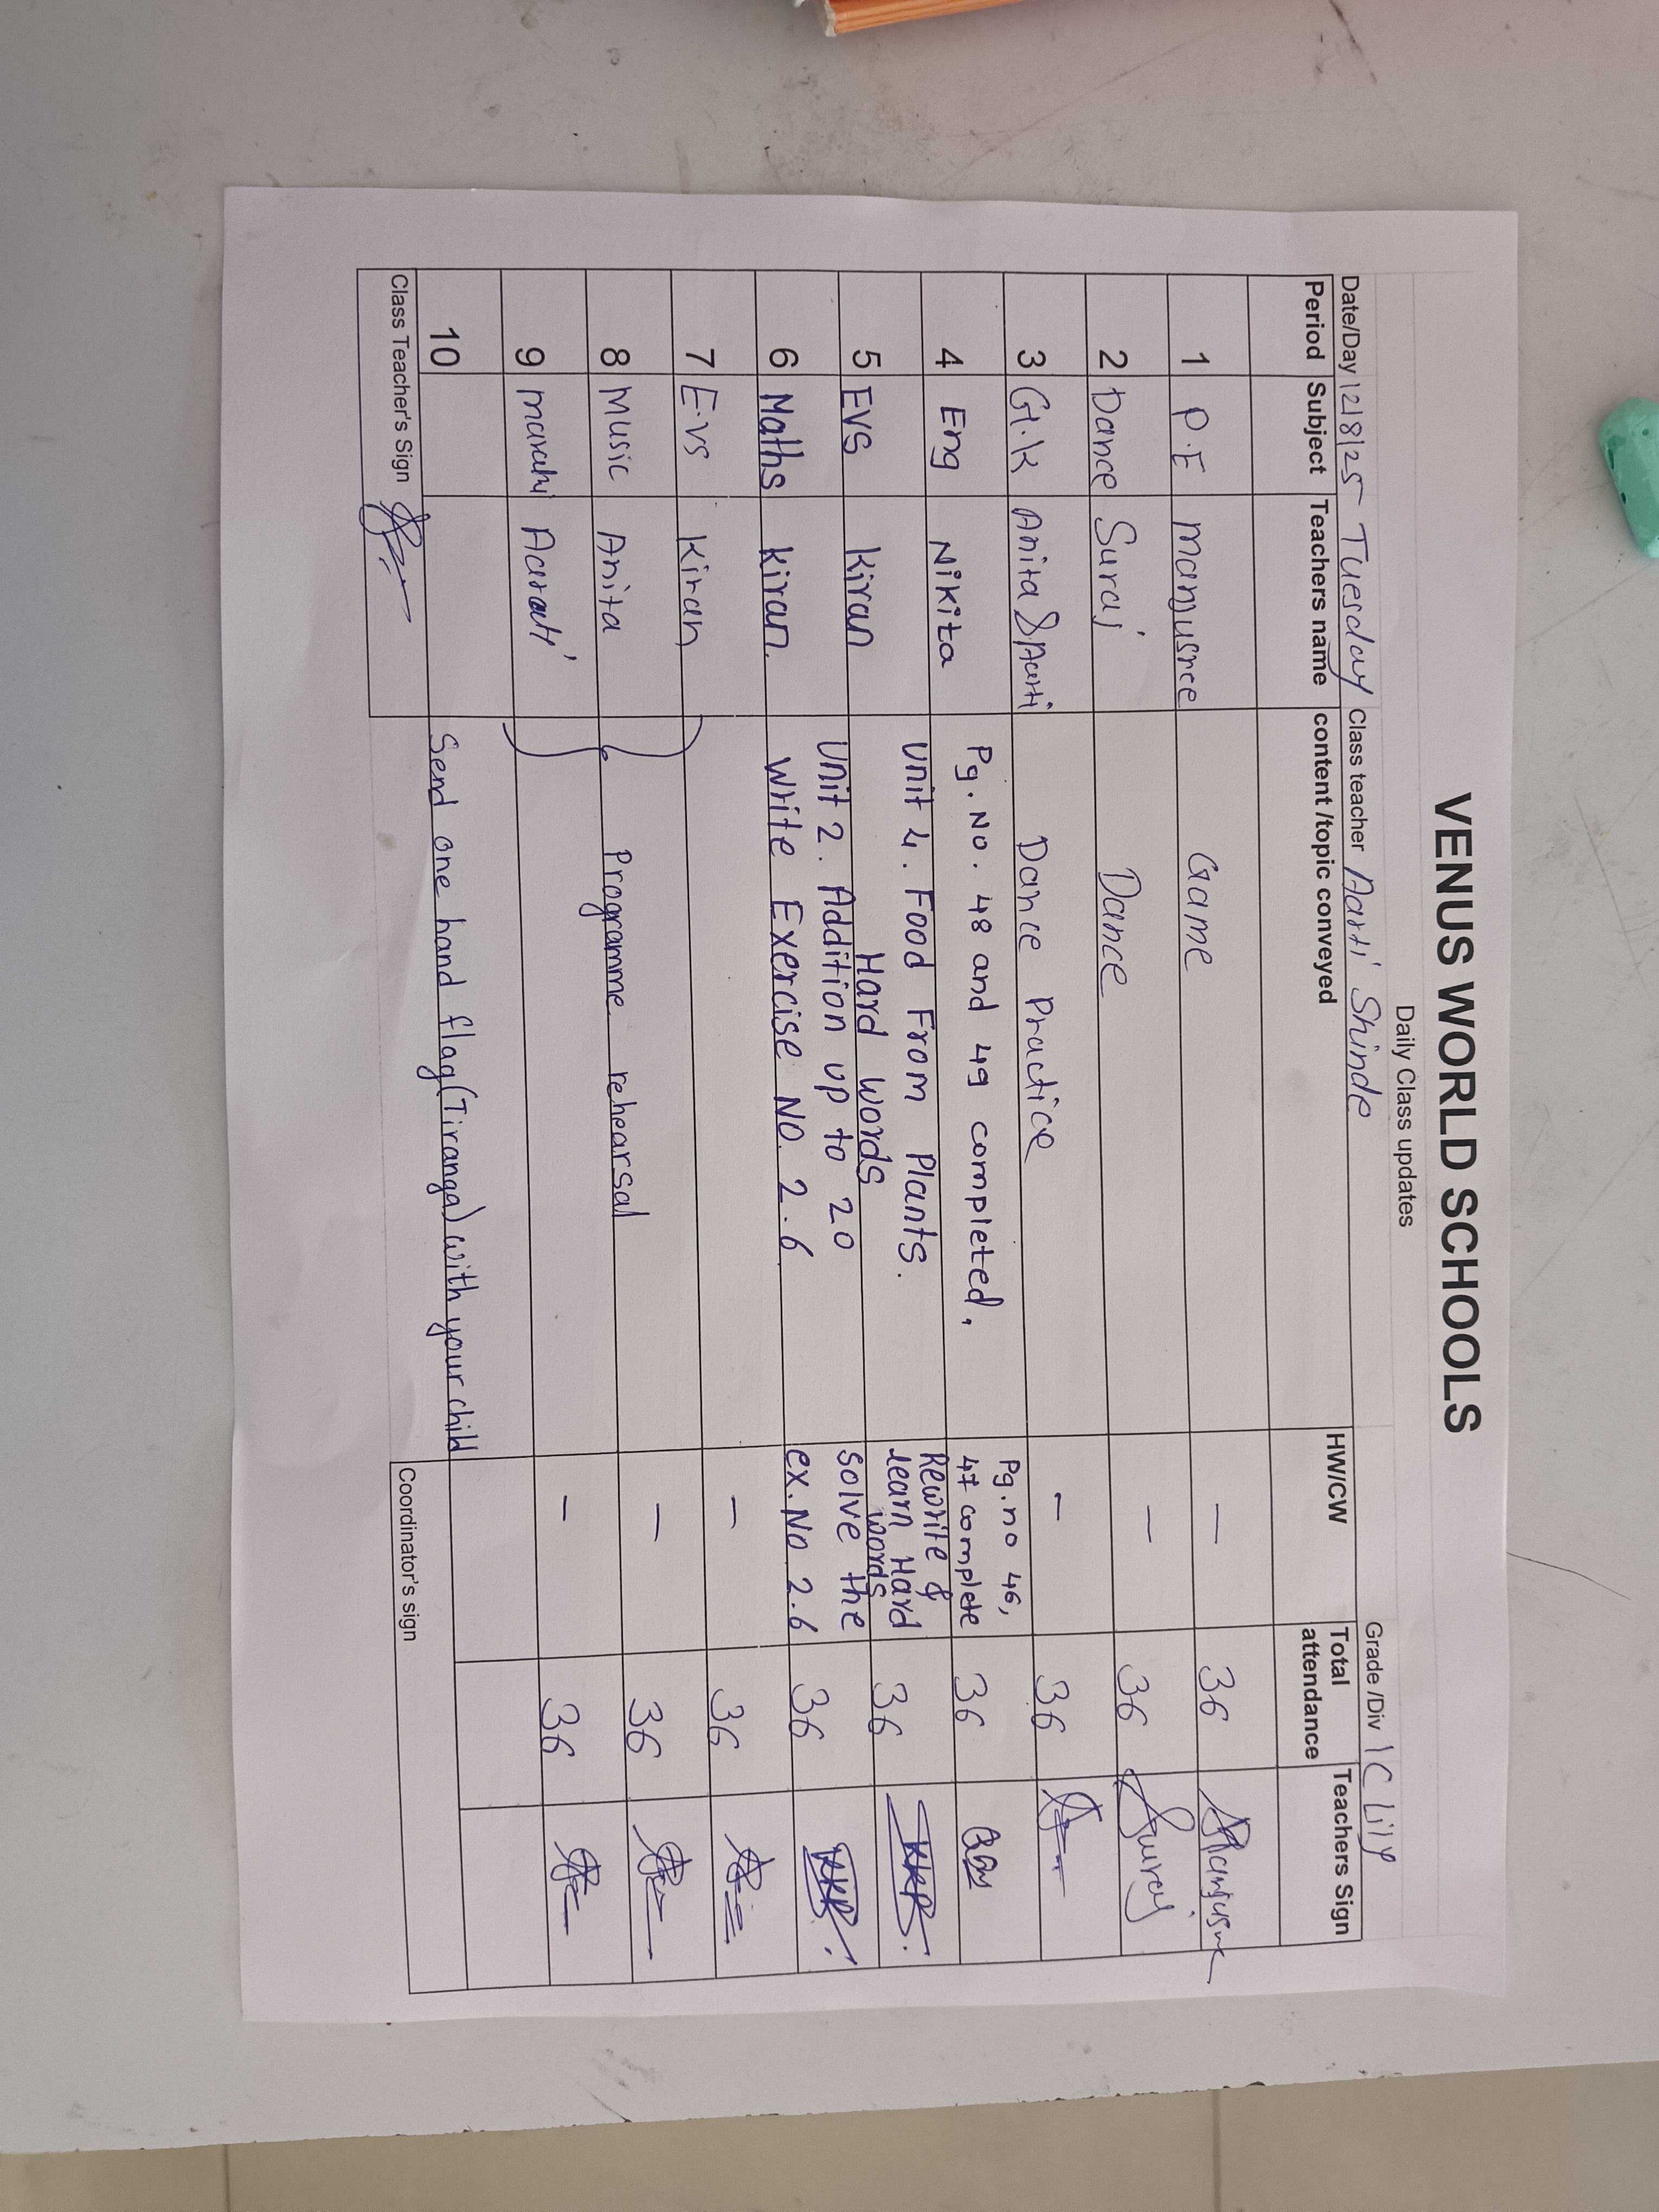 VENUS WORLD SCHOOLS
Daily Class updates
Date/Day 12/8/25 Tuesday Class teacher Aarti Shinde Grade /Div 1C Lily
Period Subject Teachers name content /topic conveyed HW/CW Total attendance Teachers Sign
1 P.E Manjusree Game — 36
2 Dance Suraj Dance — 36 Suraj
3 G.K Anita & Aarti Dance Practice — 36
4 Eng Nikita Pg. No. 48 and 49 completed. Pg. no 46, 47 complete 36
5 EVS Kiran Unit 4. Food From Plants. Hard words Rewrite & learn Hard words 36
6 Maths Kiran. Unit 2. Addition up to 20 Write Exercise No. 2.6 solve the ex. No 2.6 36
7 E.vs Kiran — 36
8 Music Anita Programme rehearsal — 36
9 marahi Aarati — 36
10
Send one hand flag (Tiranga) with your child
Class Teacher's Sign
Coordinator's sign